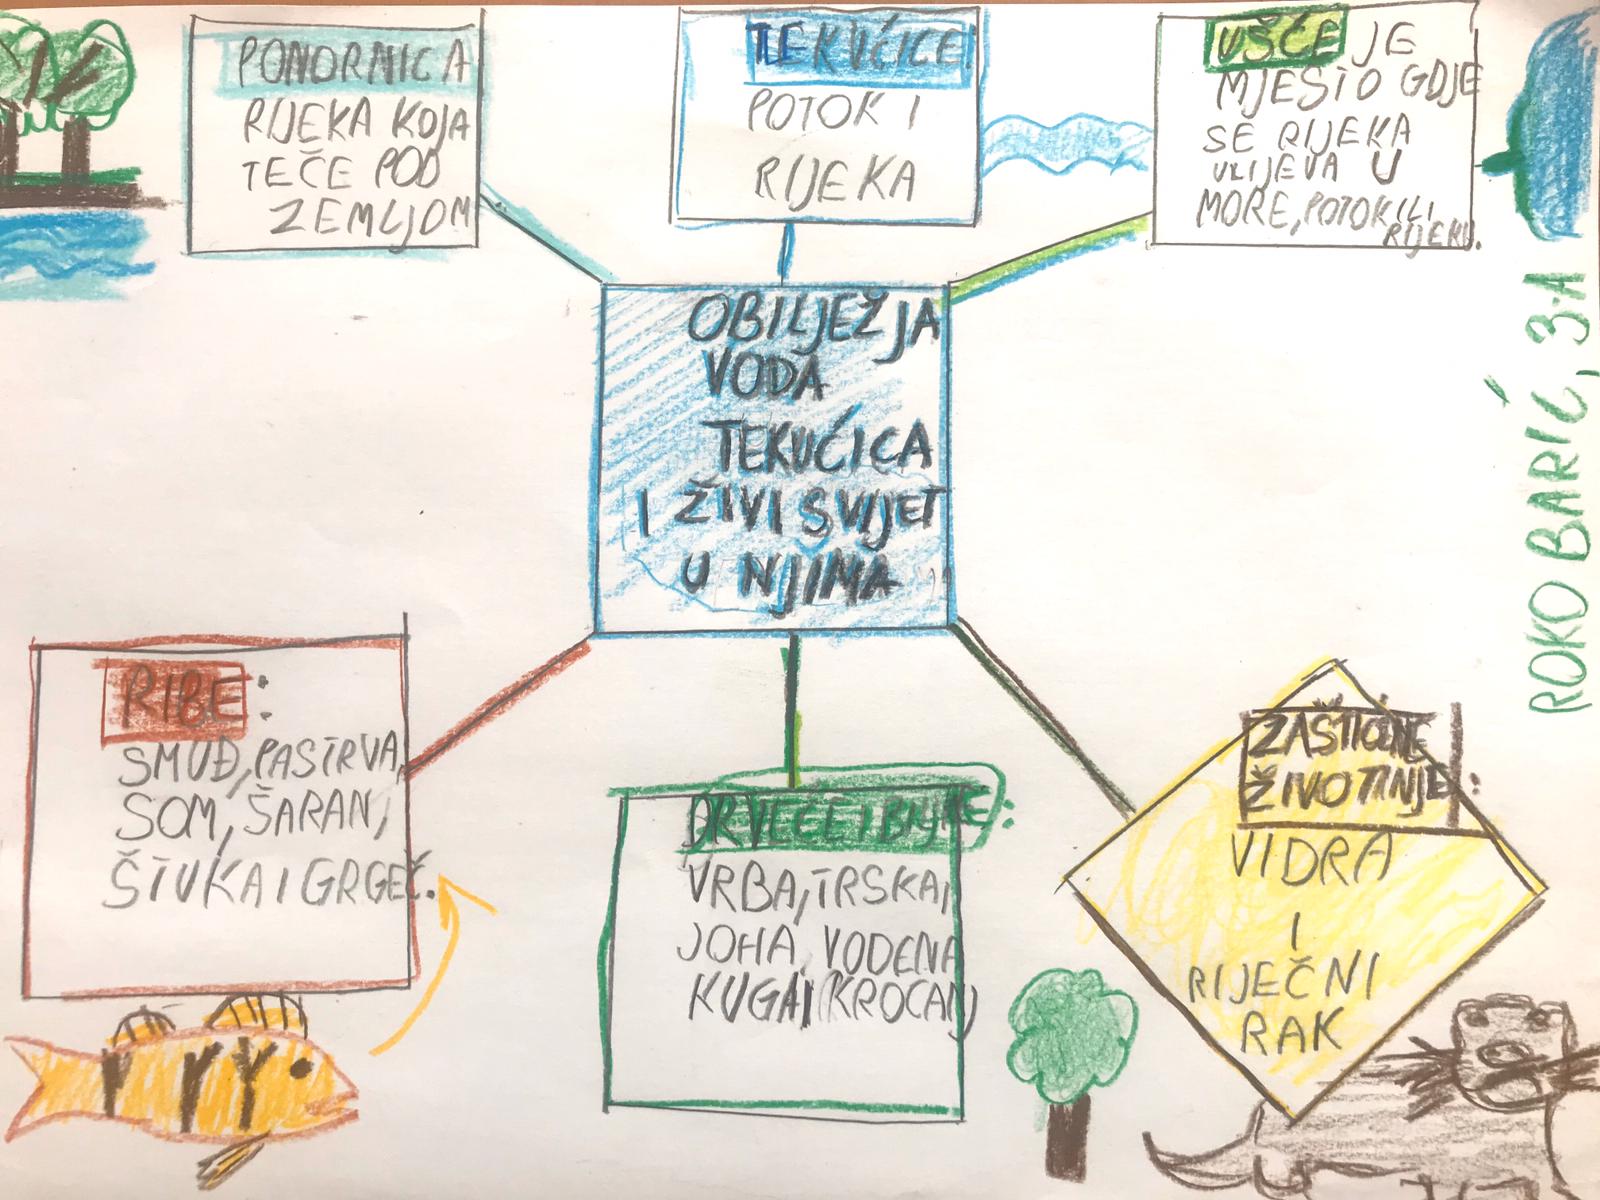 PONORNICA
RIJEKA KOJA
TEČE POD
ZEMLJOM
TEKUĆICE:
POTOK I
RIJEKA
UŠĆE JE
MJESTO GDJE
SE RIJEKA
ULIJEVA U
MORE, POTOK ILI
RIJEKU.
OBILJEŽJA
VODA
TEKUĆICA
I ŽIVI SVIJET
U NJIMA
ROKO BARIĆ, 3.A
RIBE:
SMUĐ, PASTRVA,
SOM, ŠARAN,
ŠTUKA I GRGEČ.
DRVEĆE I BILJKE:
VRBA, TRSKA,
JOHA, VODENA
KUGA I KROCANJ
ZAŠTIĆENE
ŽIVOTINJE:
VIDRA
I
RIJEČNI
RAK